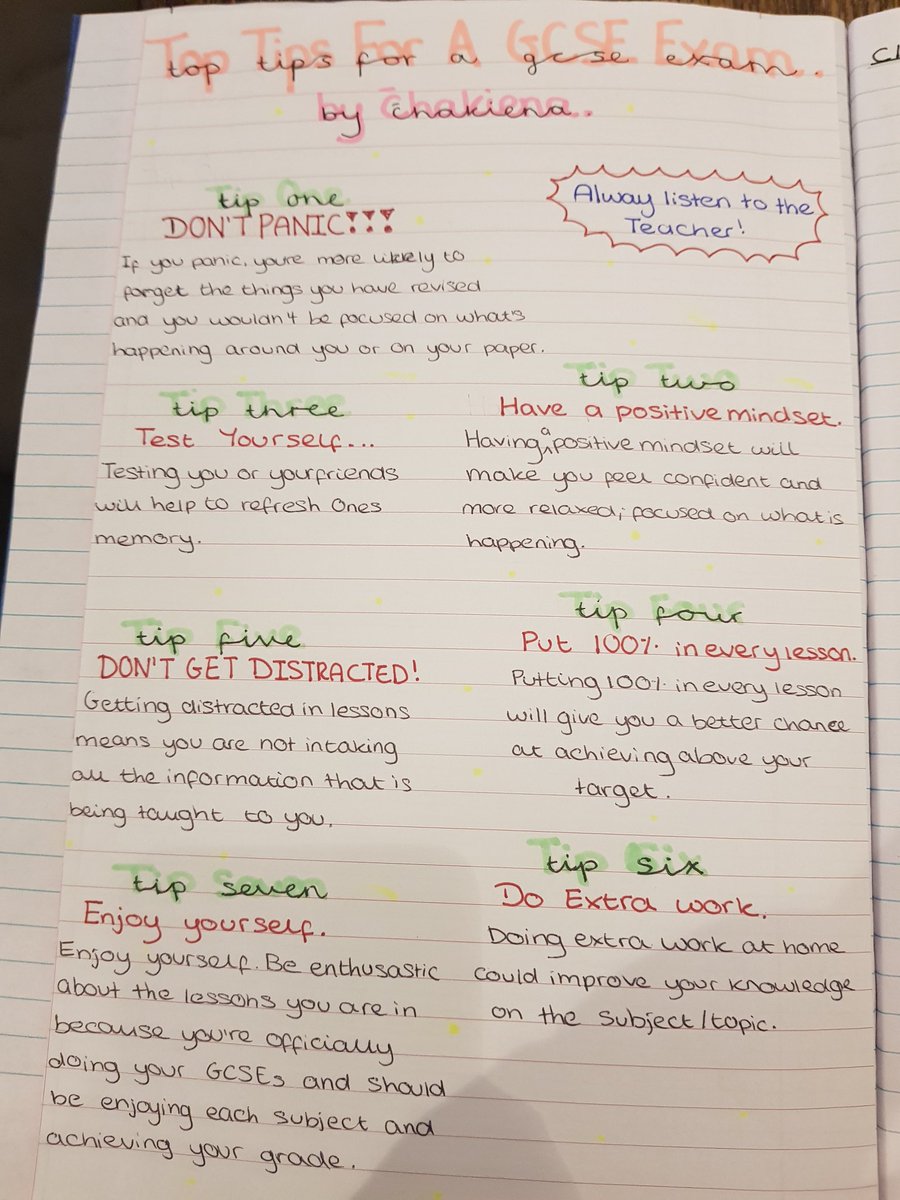 Top Tips For A GCSE Exam.
top tips for a gcse exam.
by Chakiena.
Tip One
tip one
DON'T PANIC!!!
If you panic, youre more likely to
forget the things you have revised
and you wouldn't be focused on what's
happening around you or on your paper.
Alway listen to the
Teacher!
Tip Two
tip two
Have a positive mindset.
Having a positive mindset will
make you feel confident and
more relaxed; focused on what is
happening.
Tip Three
tip three
Test Yourself...
Testing you or your friends
will help to refresh Ones
memory.
Tip Four
tip four
Put 100% in every lesson.
Putting 100% in every lesson
will give you a better chance
at achieving above your
target.
Tip Five
tip five
DON'T GET DISTRACTED!
Getting distracted in lessons
means you are not intaking
all the information that is
being taught to you.
Tip Six
tip six
Do Extra work.
Doing extra work at home
could improve your knowledge
on the subject/topic.
Tip Seven
tip seven
Enjoy yourself.
Enjoy yourself. Be enthusastic
about the lessons you are in
because you're officially
doing your GCSEs and should
be enjoying each subject and
achieving your grade.